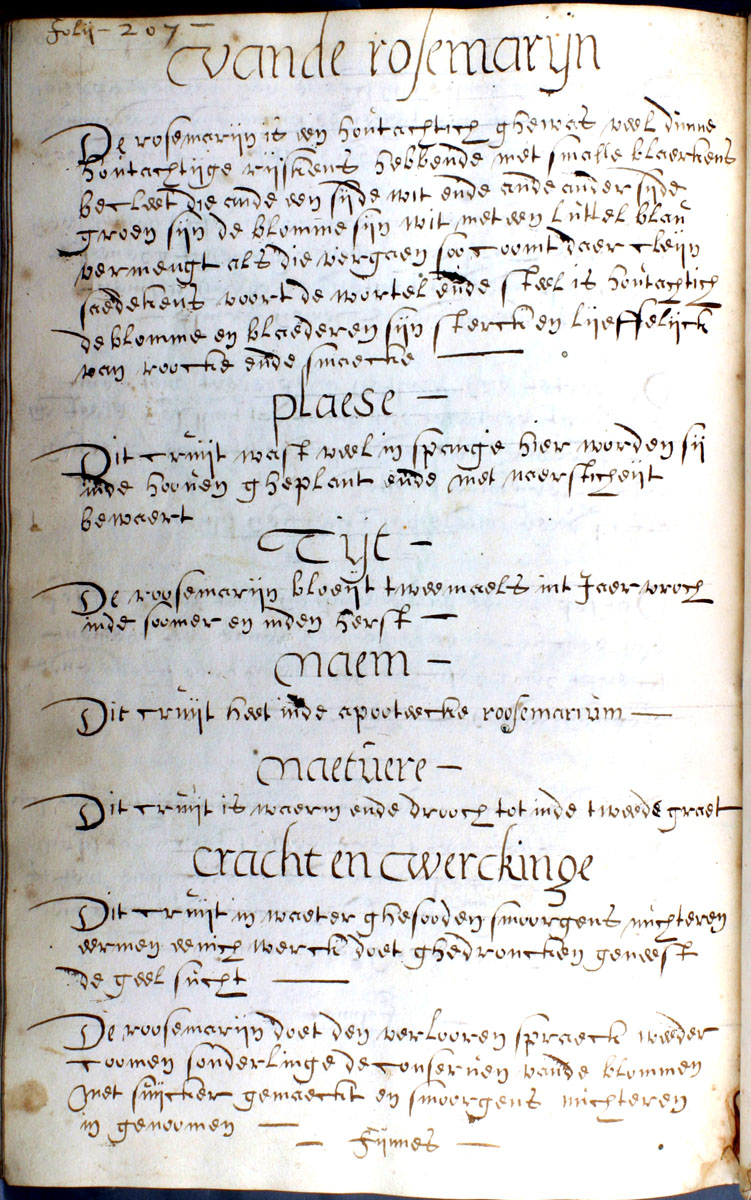 folij - 207 -
vande rosemarijn
De rosemarijn is een houtachtich ghewas veel dunne
houtachtijge rijskens hebbende met smalle blaerkens
becleet die ande een sijde wit ende ande ander sijde
groen sijn de blomme sijn wit met een luttel blau
vermengt als die vergaen soo coomt daer cleijn
saedekens voort de wortel ende steel is houtachtich
de blomme en blaederen sijn sterck en lijeffelijck
van roocke ende smaecke
plaese -
Dit cruijt wast veel in spangie hier worden sij
inde hooven gheplant ende met naersticheijt
bewaert
Tijt -
De roosemarijn bloeijt tweemaels int Jaer vroch
inde soomer en inden herfst -
Naem -
Dit cruijt heet inde apooteecke roosemarium -
Naetuere -
Dit cruijt is waerm ende drooch tot inde tweede graet
cracht en werckinge
Dit cruijt in waeter ghesooden smoorgens nuchteren
eermen eenich werck doet ghedroncken geneest
de geel sucht
De roosemarijn doet den verlooren spraeck weeder
coomen sonderlinge de conserven vande blommen
met suijcker gemaeckt en smoorgens nuchteren
in genoomen -
- Fijnnes -